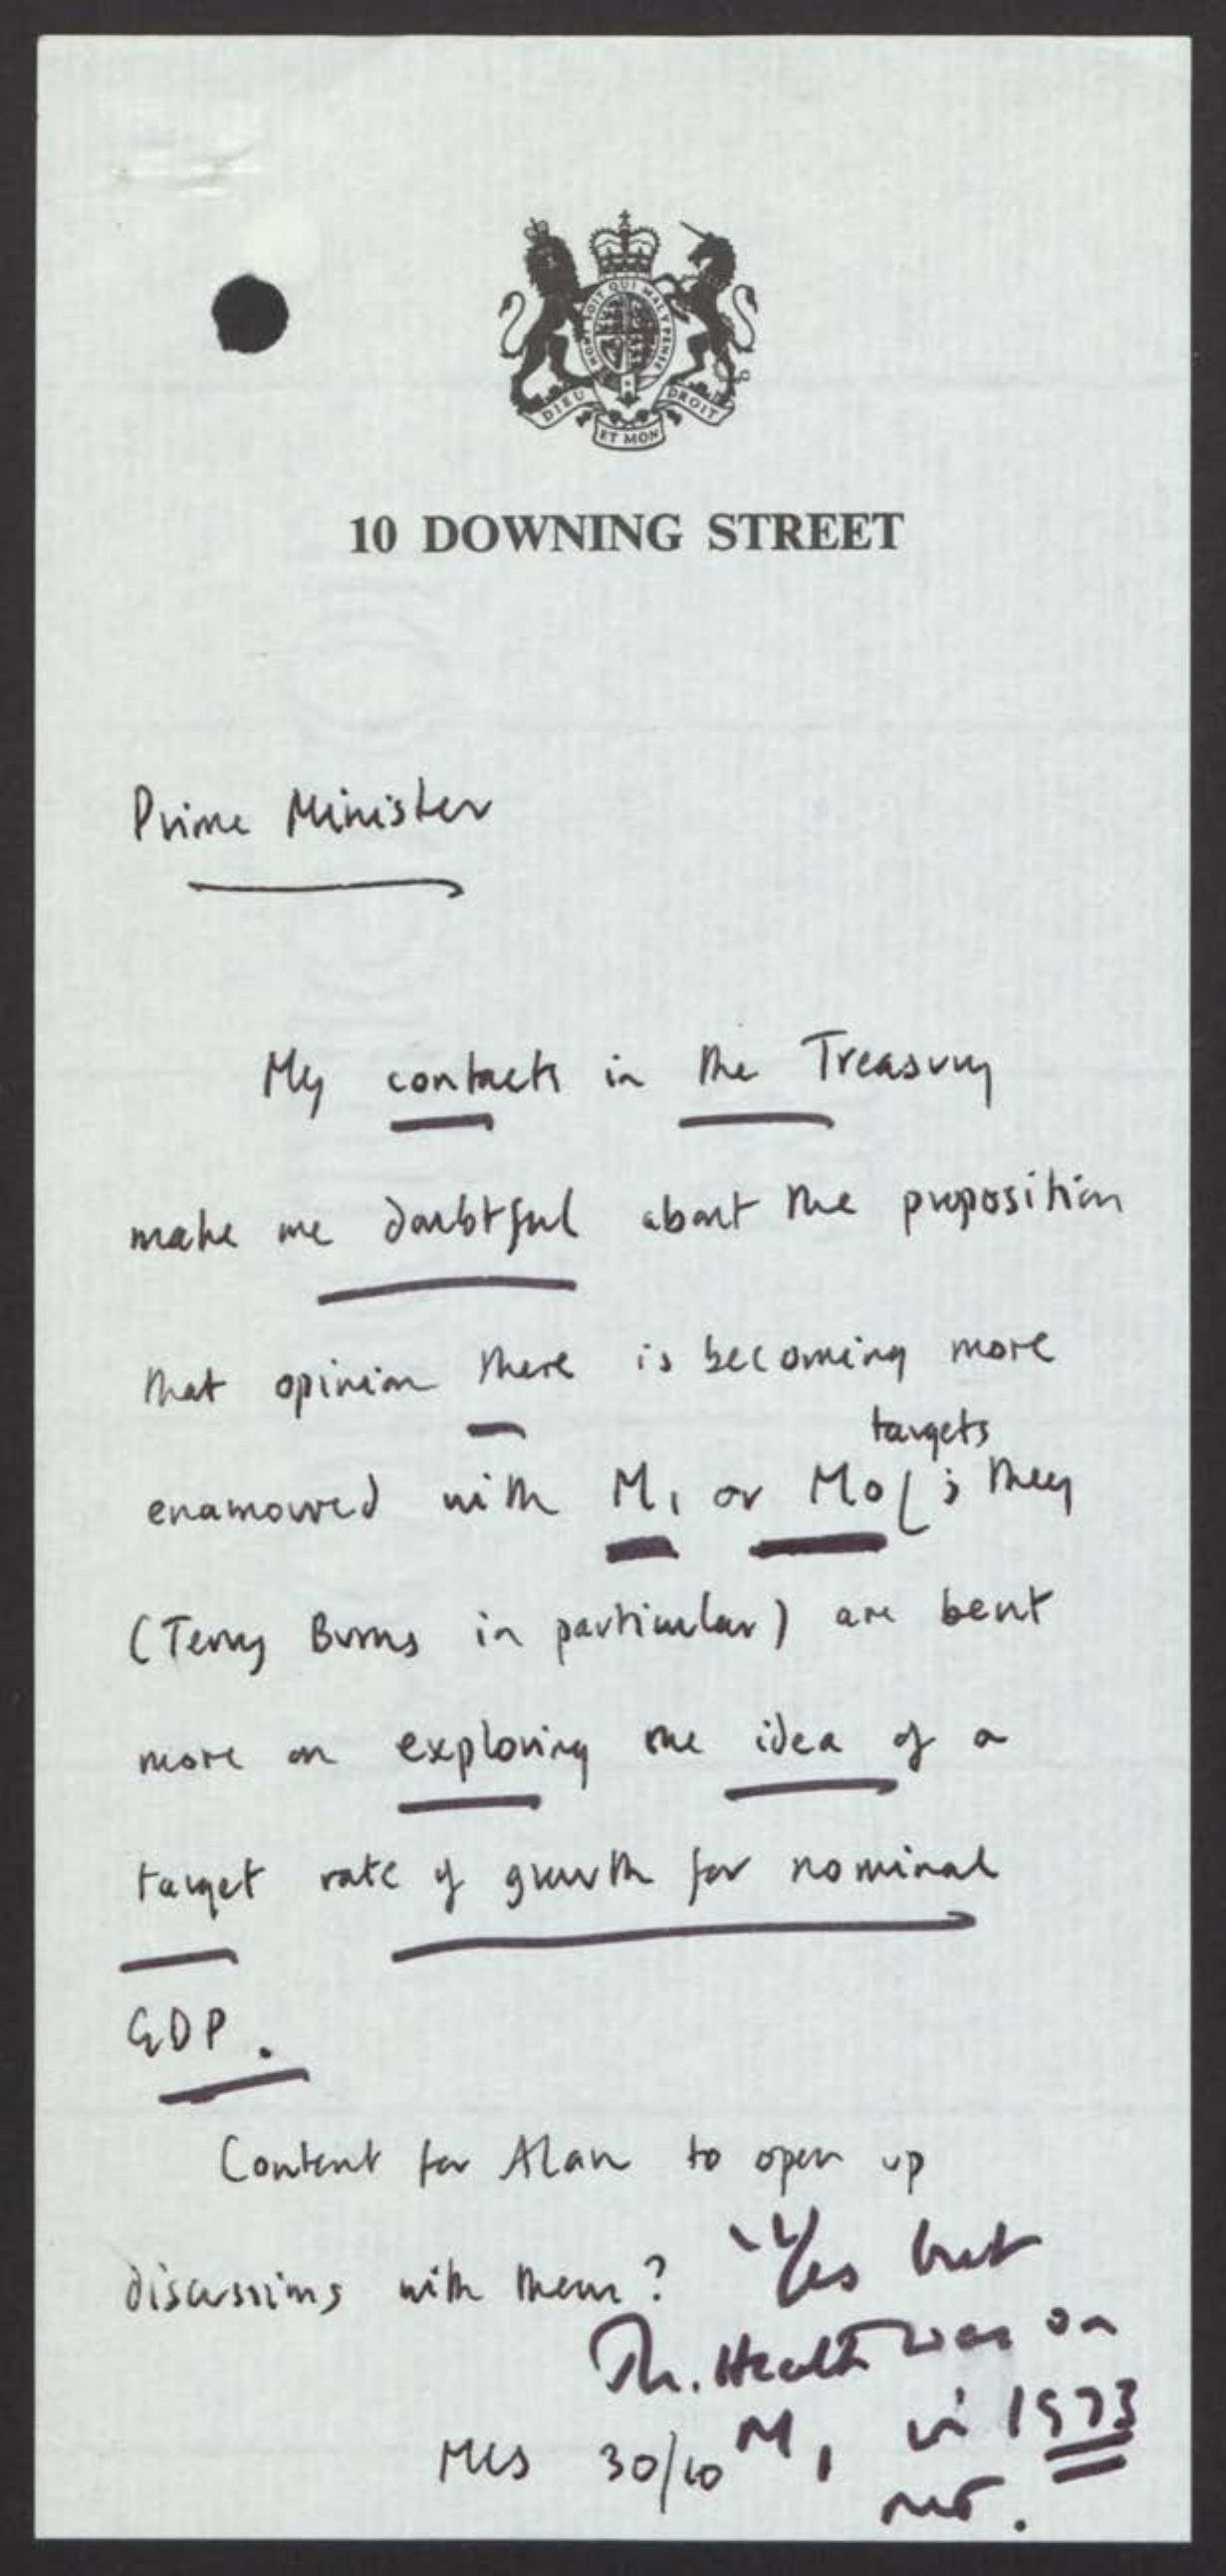 HONI SOIT QUI MAL Y PENSE
DIEU ET MON DROIT
10 DOWNING STREET
Prime Minister
My contacts in the Treasury
make me doubtful about the proposition
that opinion there is becoming more
targets
enamoured with M1 or M0 ; they
(Terry Burns in particular) are bent
more on exploring the idea of a
target rate of growth for nominal
GDP.
Content for Alan to open up
discussions with them?
Yes but
Mr. Heath was on
M1 in 1973
MCS 30/10